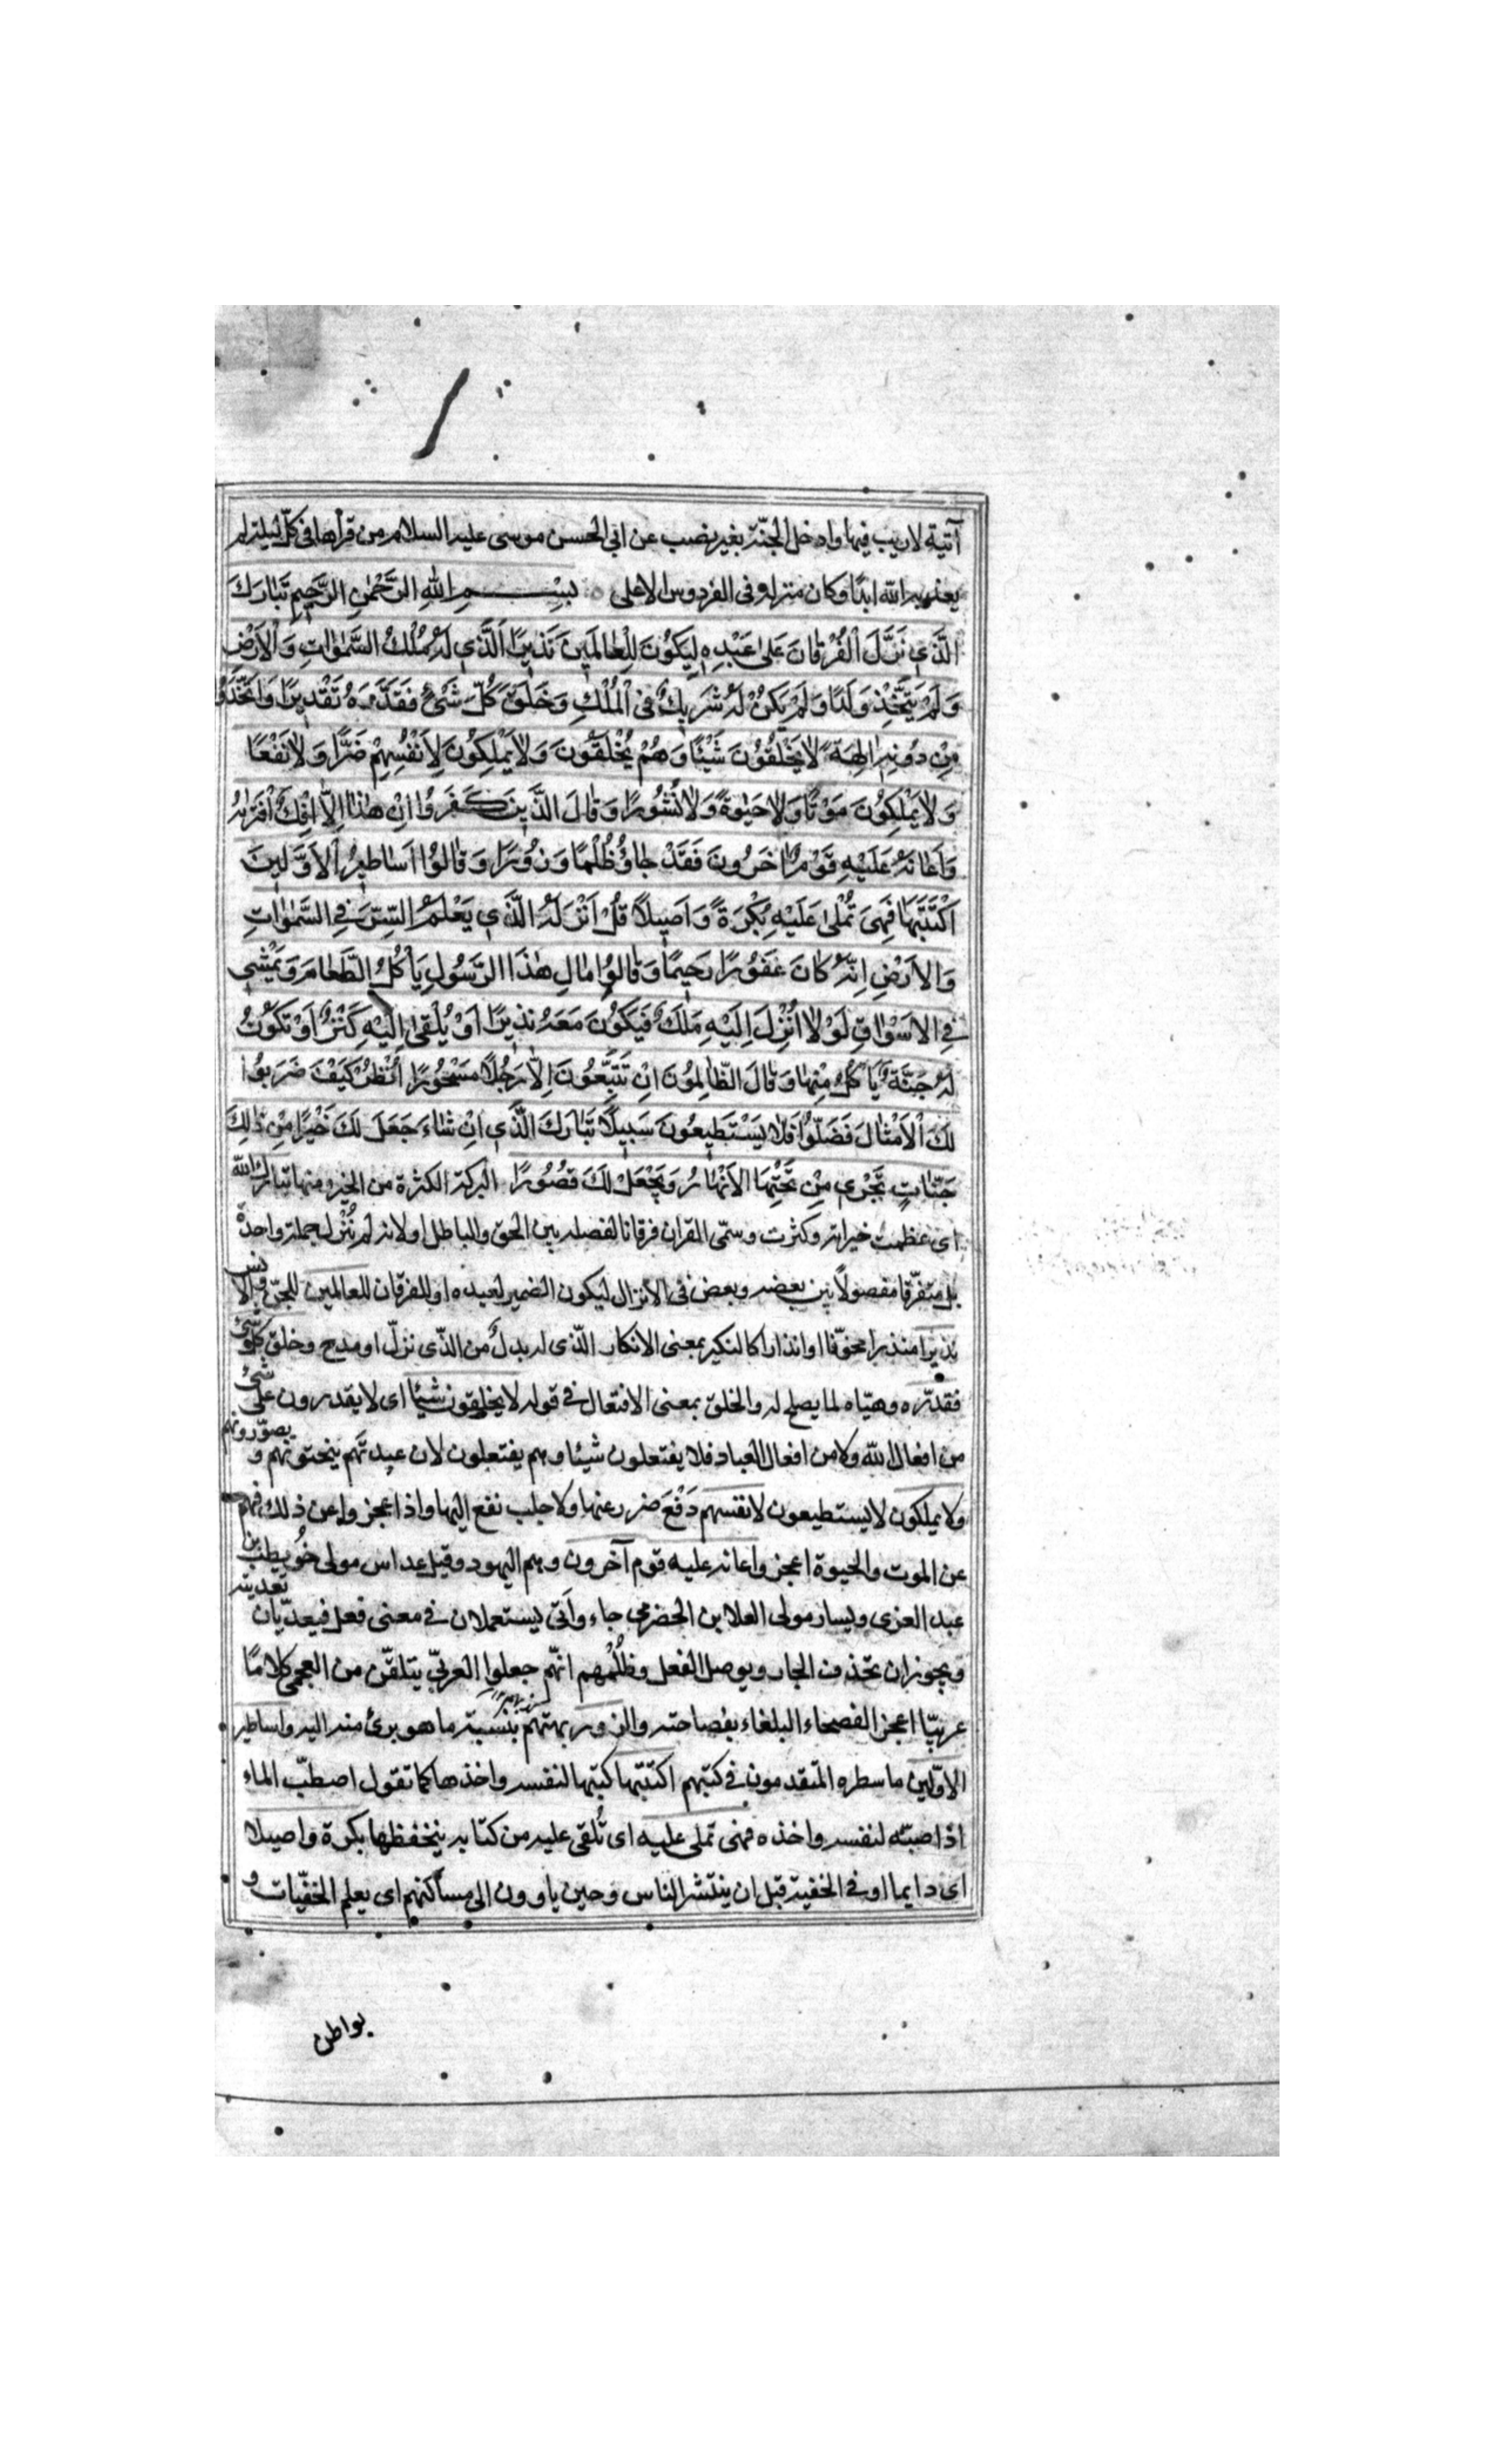 آتية لا ريب فيها وادخل الجنّة بغير نصب عن ابي الحسن موسى عليه السلام من قرأها في كلّ ليلة لم
يعذبه الله ابدًا وكان منزله في الفردوس الاعلى بِسْمِ اللهِ الرَّحْمٰنِ الرَّحِيمِ تَبٰارَكَ
الَّذي نَزَّلَ الْفُرْقٰانَ عَلىٰ عَبْدِهِ لِيَكُونَ لِلْعٰالَمينَ نَذيرًا اَلَّذي لَهُ مُلْكُ السَّمٰوٰاتِ وَالْاَرْضِ
وَلَمْ يَتَّخِذْ وَلَدًا وَلَمْ يَكُنْ لَهُ شَرِيكٌ فِى الْمُلْكِ وَخَلَقَ كُلَّ شَىْءٍ فَقَدَّرَهُ تَقْديرًا وَاتَّخَذُوا
مِنْ دُونِهِ اٰلِهَةً لٰا يَخْلُقُونَ شَيْئًا وَهُمْ يُخْلَقُونَ وَلٰا يَمْلِكُونَ لِاَنْفُسِهِمْ ضَرًّا وَلٰا نَفْعًا
وَلٰا يَمْلِكُونَ مَوْتًا وَلٰا حَيٰوةً وَلٰا نُشُورًا وَقٰالَ الَّذينَ كَفَرُوا اِنْ هٰذٰا اِلّٰا اِفْكٌ افْتَرٰيهُ
وَاَعٰانَهُ عَلَيْهِ قَوْمٌ اٰخَرُونَ فَقَدْ جٰاؤُ ظُلْمًا وَزُورًا وَقٰالُوا اَسٰاطيرُ الْاَوَّلينَ
اكْتَتَبَهٰا فَهِىَ تُمْلىٰ عَلَيْهِ بُكْرَةً وَاَصيلًا قُلْ اَنْزَلَهُ الَّذي يَعْلَمُ السِّرَّ فِي السَّمٰوٰاتِ
وَالْاَرْضِ اِنَّهُ كٰانَ غَفُورًا رَحيمًا وَقٰالُوا مٰالِ هٰذَا الرَّسُولِ يَاْكُلُ الطَّعٰامَ وَيَمْشي
فِي الْاَسْوٰاقِ لَوْلٰا اُنْزِلَ اِلَيْهِ مَلَكٌ فَيَكُونَ مَعَهُ نَذيرًا اَوْ يُلْقىٰ اِلَيْهِ كَنْزٌ اَوْ تَكُونُ
لَهُ جَنَّةٌ يَاْكُلُ مِنْهٰا وَقٰالَ الظّٰالِمُونَ اِنْ تَتَّبِعُونَ اِلّٰا رَجُلًا مَسْحُورًا اُنْظُرْ كَيْفَ ضَرَبُوا
لَكَ الْاَمْثٰالَ فَضَلُّوا فَلٰا يَسْتَطيعُونَ سَبيلًا تَبٰارَكَ الَّذي اِنْ شٰاءَ جَعَلَ لَكَ خَيْرًا مِنْ ذٰلِكَ
جَنّٰاتٍ تَجْري مِنْ تَحْتِهَا الْاَنْهٰارُ وَيَجْعَلْ لَكَ قُصُورًا البركة الكثرة من الخير ومنها تبارك الله
اى عظمت خيراته وكثرت وسمّى القران فرقانا لفصله بين الحق والباطل اولانه لم يُنْزل جملة واحدةً
بل متفرّقا مفصولًا بين بعضه وبعض في الانزال ليكون الضمير لعبده او للفرقان للعالمين للجنّ والانس
نذيرا منذرا مخوّفا او انذارا كالنكير بمعنى الانكار الّذى له بدلٌ من الذّى نزّل او مدح وخلق كلّ شئ
فقدّره وهيّاه لما يصلح له والخلق بمعنى الافتعال في قوله لا يخلقون شيئا اى لا يقدرون على شئ
من افعال الله ولا من افعال العباد فلا يفتعلون شيئا وهم يفتعلون لان عبدتهم ينحتونهم و يصوّرونهم
ولا يملكون لا يستطيعون لانفسهم دَفْعَ ضرر عنها ولا جلب نفع اليها واذا عجزوا عن ذلك فهم
عن الموت والحيوة اعجز واعانه عليه قوم آخرون وهم اليهود وقيل عداس مولى حُويطب بن
عبد العزى ويسار مولى العلا بن الحضرمى جاء وأتى يستعملان في معنى فعل فيعدّيان تعديته
ويجوز ان تحذف الجار ويوصل الفعل وظُلْمهم انهّم جعلوا العربيّ يتلقّن من العجمى كلامًا
عربيّا اعجز الفصحاء البلغاء بفصاحته والزور بهتهم بنسبة ما هو برئ منه اليه واساطير
الاوّلين ما سطره المتقدمون في كتبهم اكتتبها كتبها لنفسه واخذها كما تقول اصطبّ الماء
اذا صبّه لنفسه واخذه فهى تملى عليه اى تُلقى عليه من كتابه يتحفظها بكرة واصيلا
اى دايما او في الخفية قبل ان ينتشر الناس وحين ياوون الى مساكنهم اى يعلم الخفيّات و
بواطن